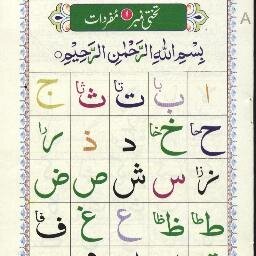 تختی نمبر ۱ مفردات
A
بِسْمِ اللهِ الرَّحْمٰنِ الرَّحِیْمِ
ا ب با ت تا ث ثا ج
ح حا خ خا د ذ ر را
ز زا س ش ص ض
ط طا ظ ظا ع غ ف فا